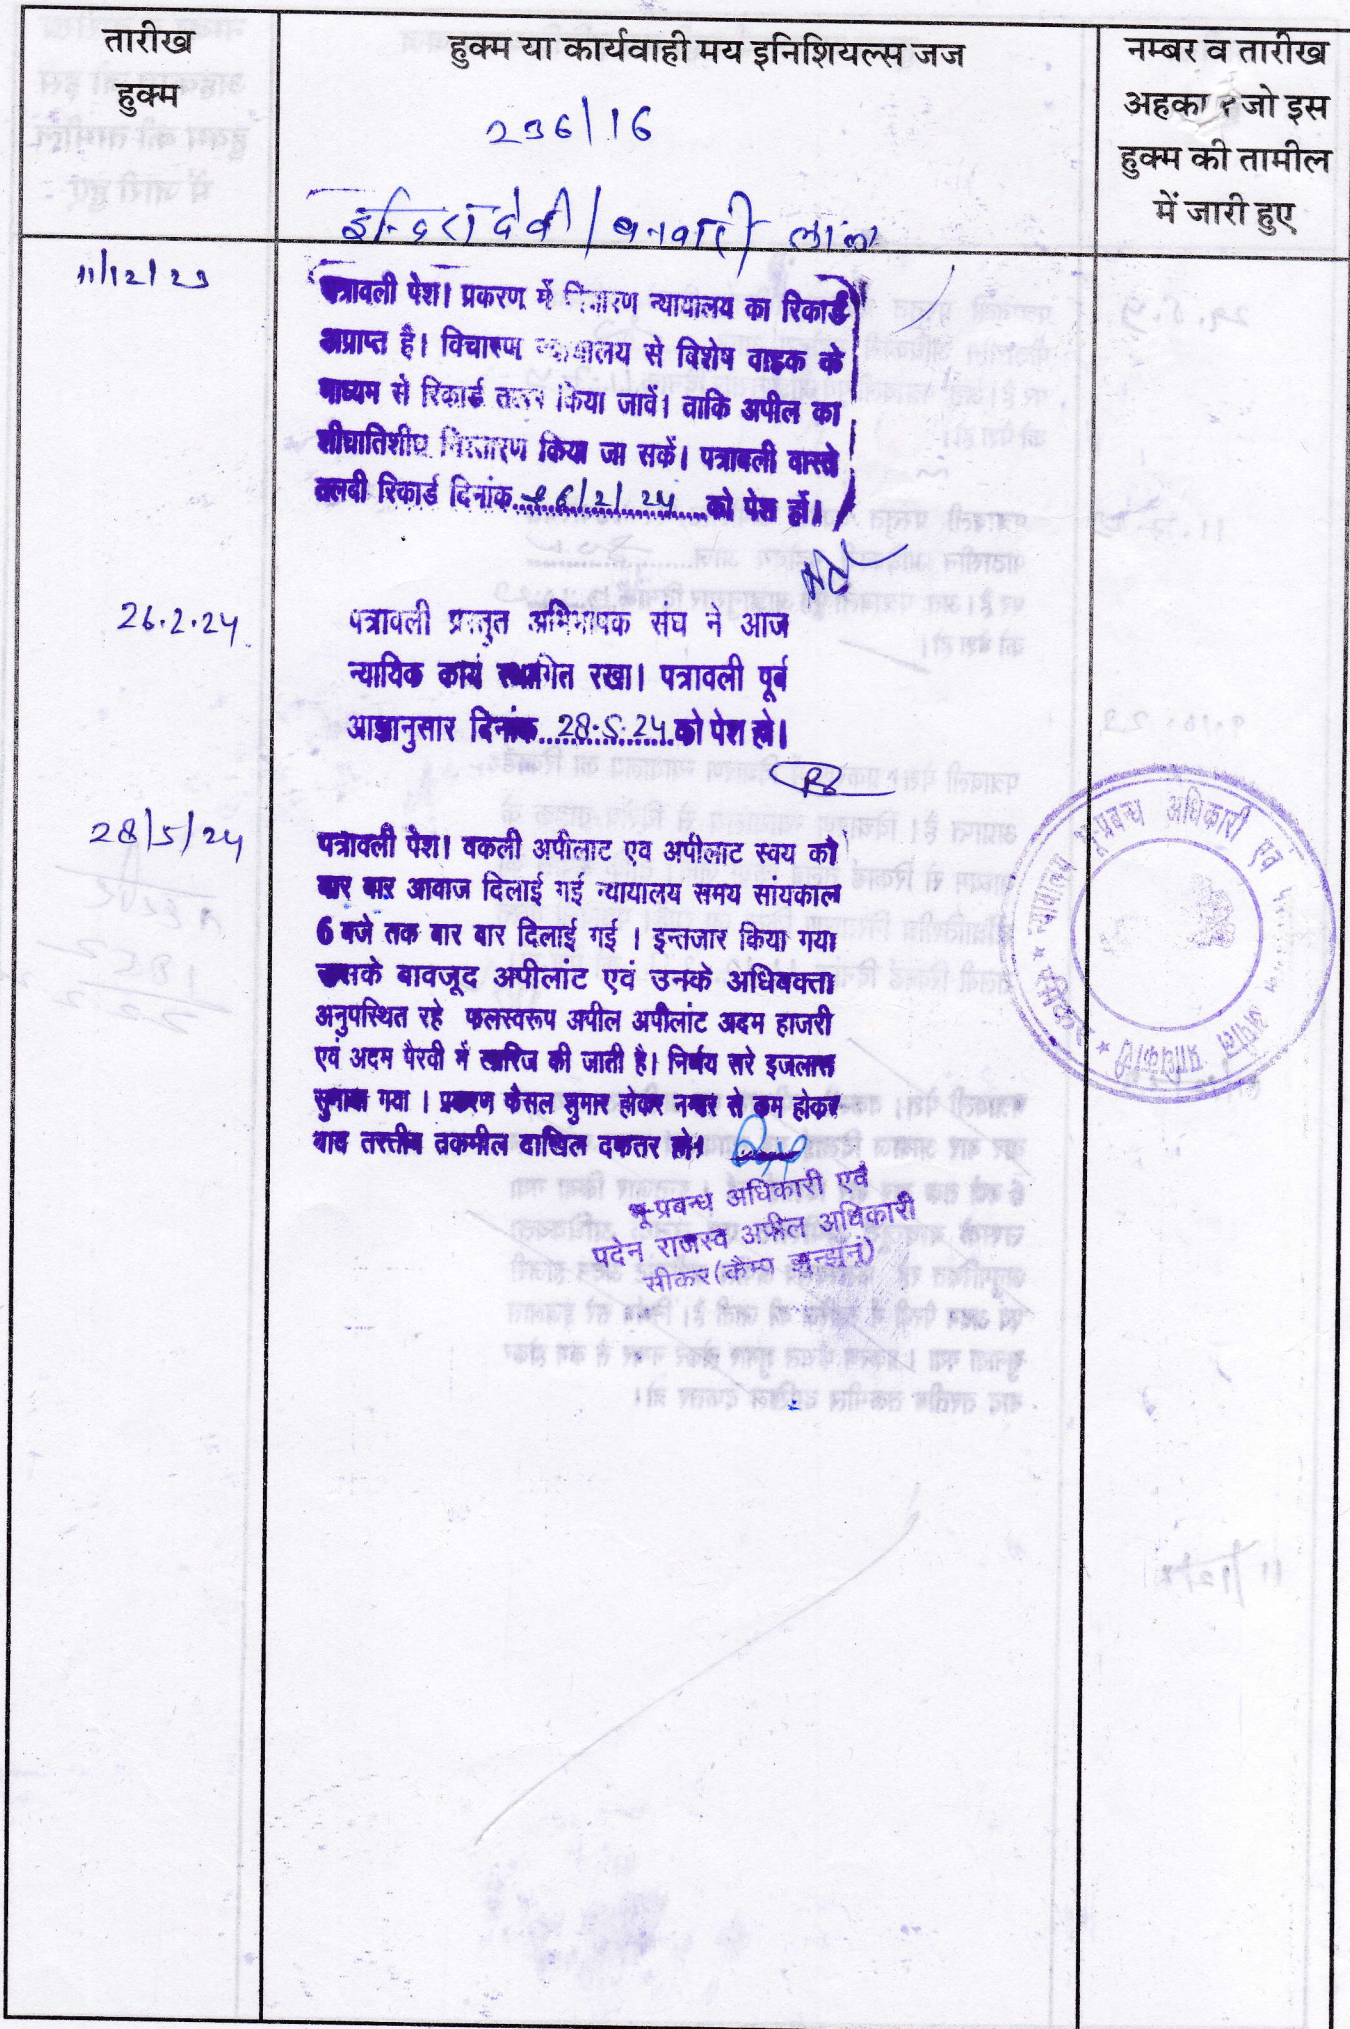 तारीख
हुक्म
हुक्म या कार्यवाही मय इनिशियल्स जज
नम्बर व तारीख
अहकाम जो इस
हुक्म की तामील
में जारी हुए
236/16
इन्द्रिरा देवी / बनवारी लाल
11/12/23
पत्रावली पेश। प्रकरण में विचारण न्यायालय का रिकार्ड
अप्राप्त है। विचारण न्यायालय से विशेष वाहक के
माध्यम से रिकार्ड तलब किया जावें। ताकि अपील का
शीघ्रातिशीघ्र निस्तारण किया जा सकें। पत्रावली वास्ते
तलबी रिकार्ड दिनांक 26/2/24 को पेश हों।
26.2.24
पत्रावली प्रस्तुत अभिभाषक संघ ने आज
न्यायिक कार्य स्थागित रखा। पत्रावली पूर्व
आज्ञानुसार दिनांक 28.5.24 को पेश हो।
28/5/24
पत्रावली पेश। वकली अपीलाट एव अपीलाट स्वय को
बार बार आवाज दिलाई गई न्यायालय समय सांयकाल
6 बजे तक बार बार दिलाई गई । इन्तजार किया गया
उसके बावजूद अपीलांट एवं उनके अधिवक्ता
अनुपस्थित रहे फलस्वरूप अपील अपीलांट अदम हाजरी
एवं अदम पैरवी में खारिज की जाती है। निर्णय सरे इजलास
सुनाया गया । प्रकरण फैसल शुमार होकर नम्बर से कम होकर
बाद तरतीब तकमील दाखिल दफतर हो।
भू-प्रबन्ध अधिकारी एवं
पदेन राजस्व अपील अधिकारी
सीकर (कैम्प झुन्झुनूं)
न्यायालय भू-प्रबन्ध अधिकारी एवं
अपील प्राधिकारी
सीकर